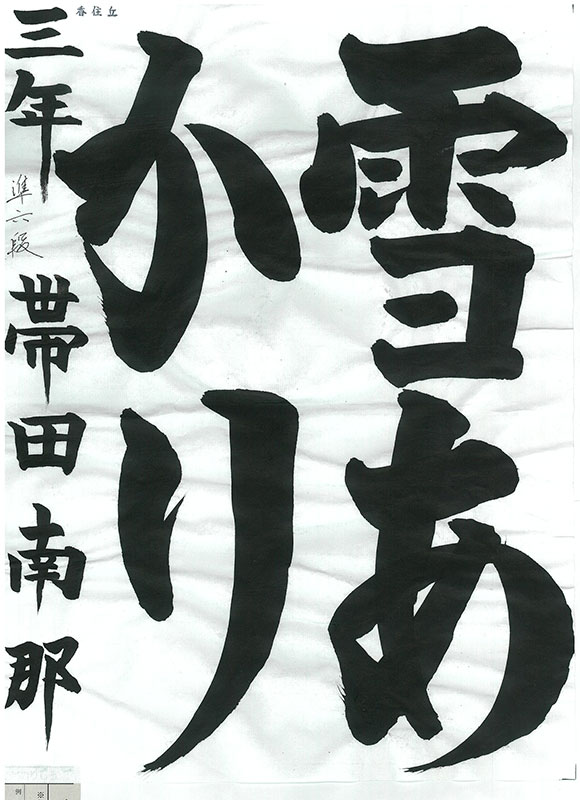 雪あ
かり
香住丘
三年 準六段 帯田南那
例
※